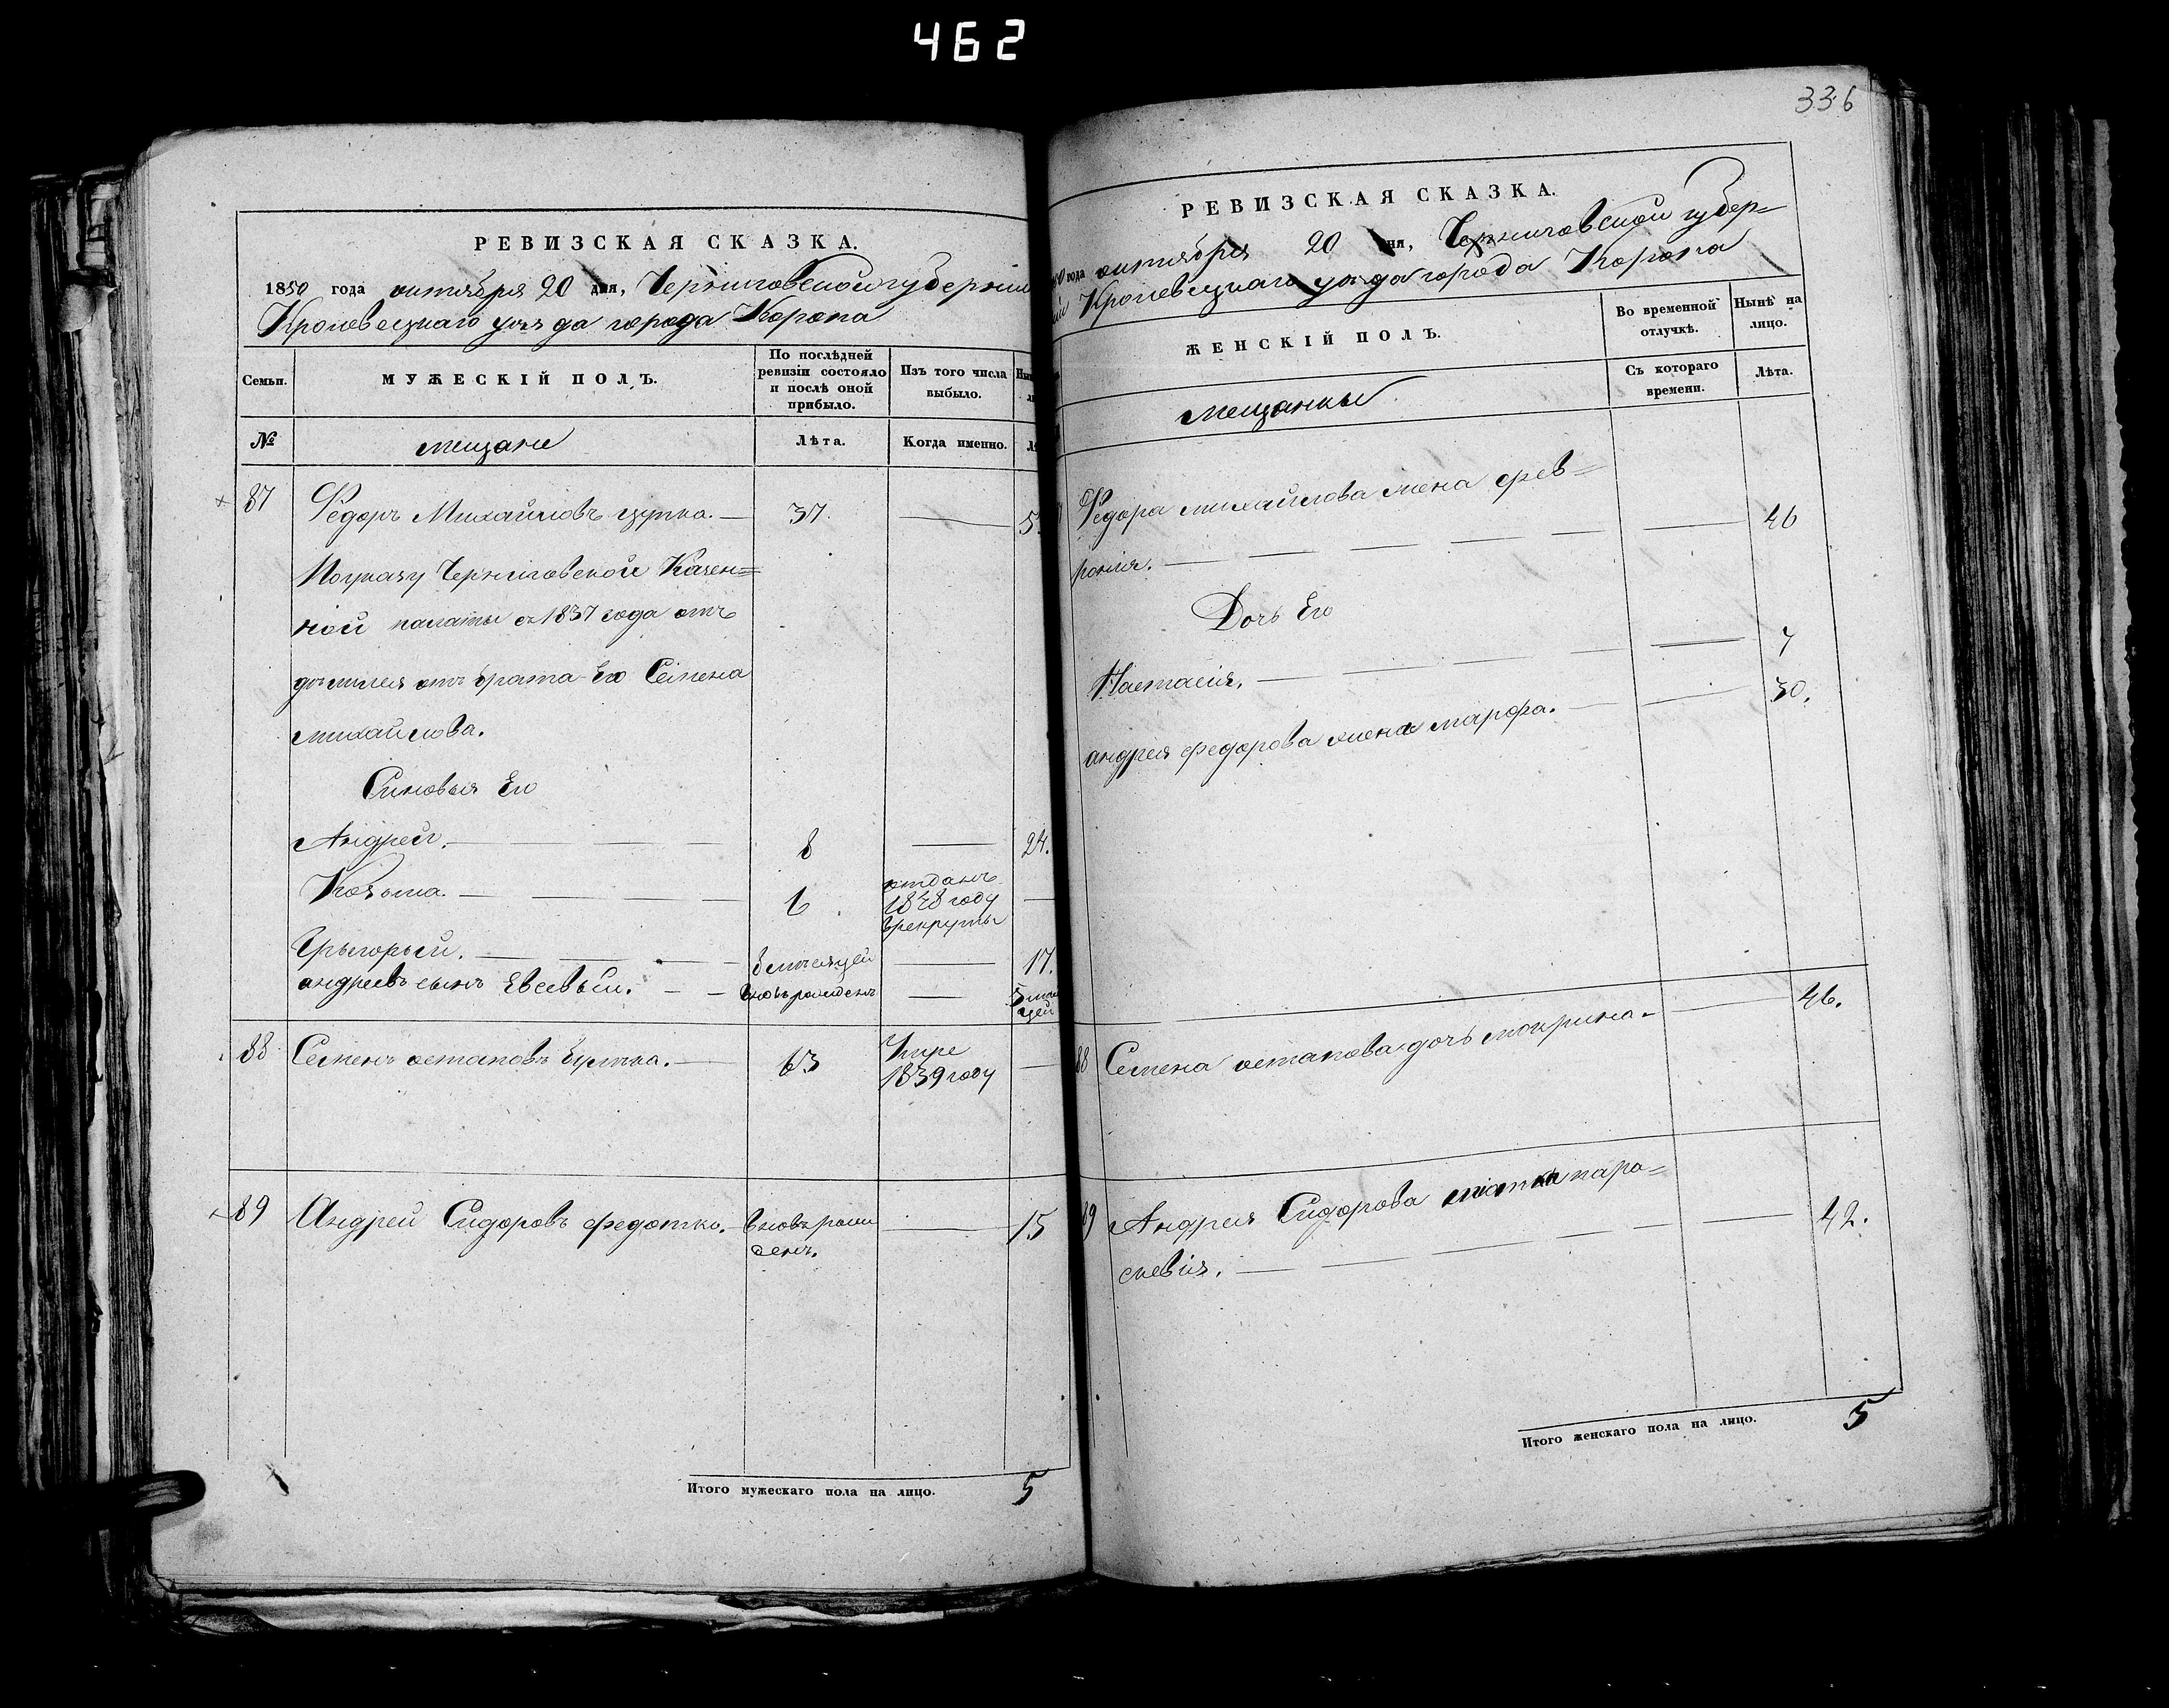 462
336
РЕВИЗСКАЯ СКАЗКА.
1850 года октября 20 дня, Черниговской губернии
Кролевецкаго уезда города Коропа
Семьи.
МУЖЕСКІЙ ПОЛЪ.
По послѣдней ревизіи состояло и послѣ оной прибыло.
Изъ того числа выбыло.
№
мещане
Лѣта.
Когда именно.
87 Федоръ Михайловъ 37.
По указу Черниговской Казен=
ной палаты съ 1837 года отъ
делился отъ брата Его Семена
михайлова.
Синовья Его
Андрей. 8 24.
Козьма. 6 отданъ
1848 году
в рекруты
Грыгорый. 8 месяцей 17.
андреевъ сынъ Евсевый. вновь рожденъ 5 меся
цей
88 Семенъ остаповъ 63 Умре
1839 году
89 Андрей Сидоровъ федотко. вновь рож 15
денъ.
Итого мужескаго пола на лицо. 5
РЕВИЗСКАЯ СКАЗКА.
года октября 20 дня, Черниговской губер=
ніи Кролевецкаго уезда города Коропа
ЖЕНСКІЙ ПОЛЪ.
Во временной отлучкѣ.
Нынѣ на лицо.
мещанки
Съ котораго времени.
Лѣта.
Федора михайлова жена фев=
ронія. 46
Дочь Его
Настасия. 7
андрея федорова жена марфа. 30.
88 Семена остапова дочь мокрина. 46.
89 Андрея Сидорова матка пара=
скевія. 42.
Итого женскаго пола на лицо. 5